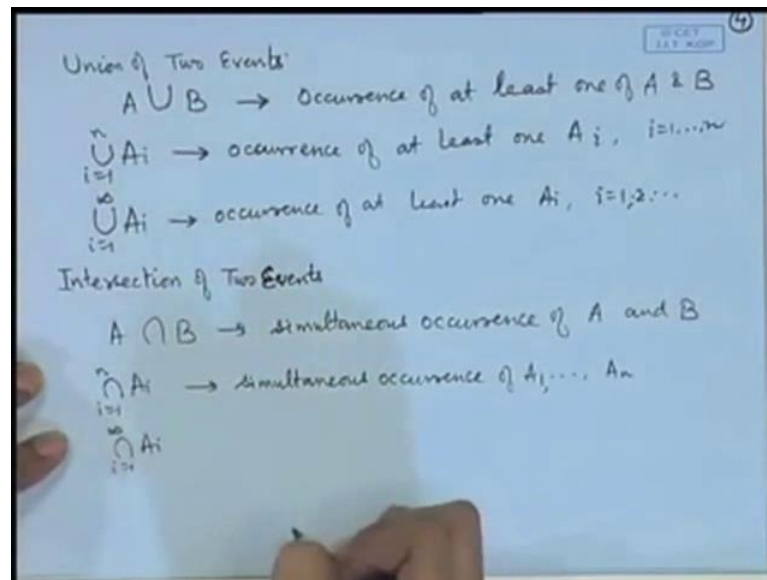 4
I.I.T. KGP
Union of Two Events
A ∪ B → Occurrence of at least one of A & B
n
∪ Ai → occurrence of at least one Ai, i=1....n
i=1
∞
∪ Ai → occurrence of at least one Ai, i=1,2....
i=1
Intersection of Two Events
A ∩ B → simultaneous occurrence of A and B
n
∩ Ai → simultaneous occurrence of A1,.... An
i=1
∞
∩ Ai
i=1